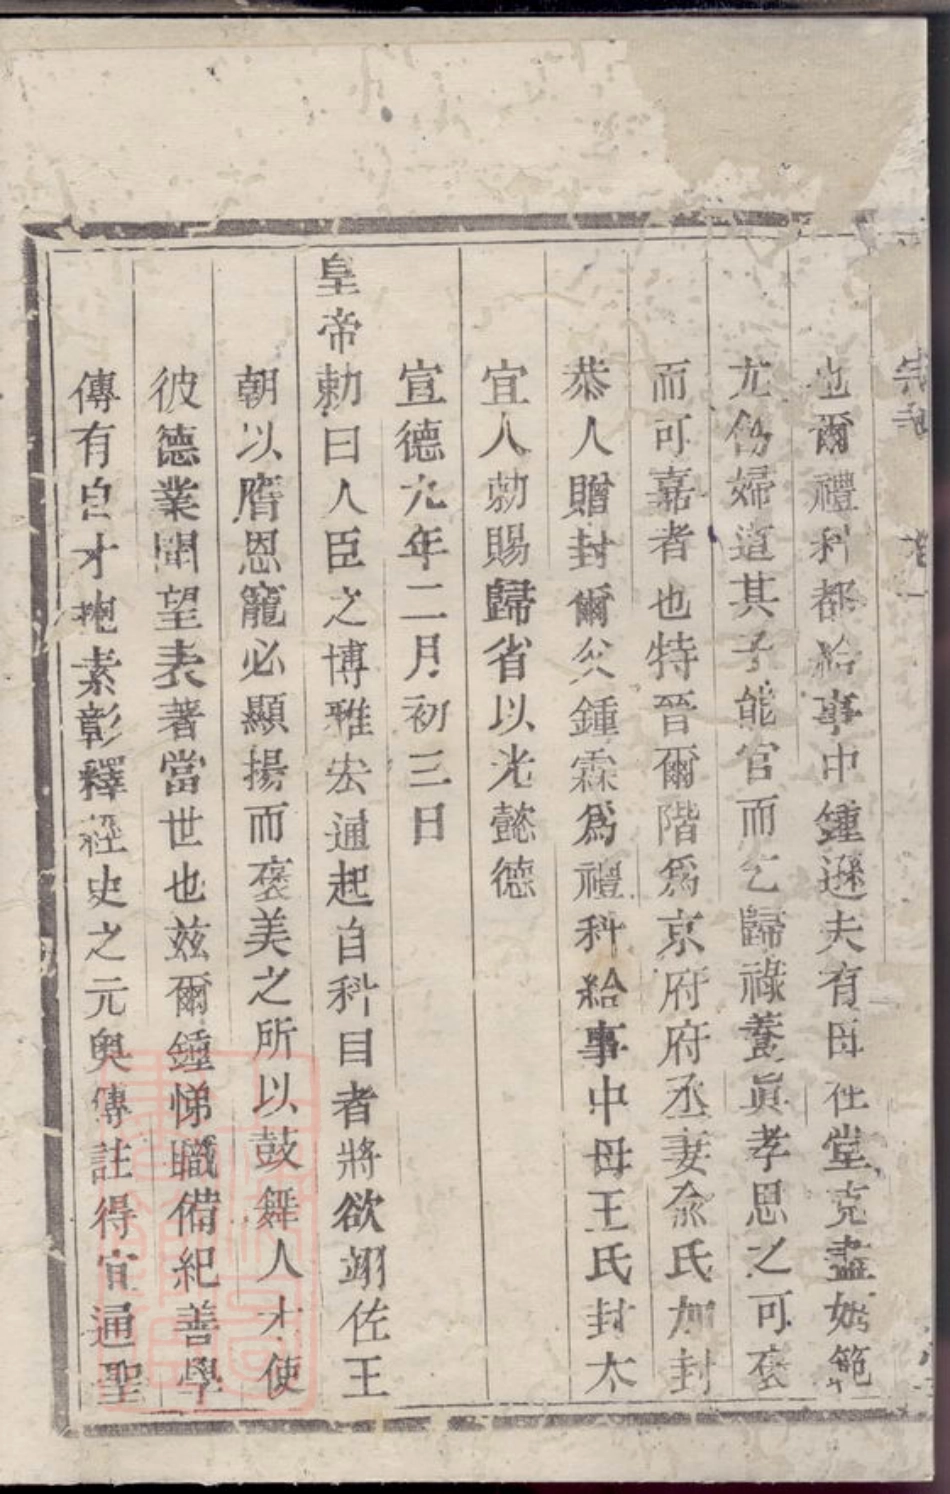 也爾禮科都給事中鍾遜夫有母在堂克盡嫓範
尤飭婦道其子能官而乞歸祿養眞孝思之可褒
而可嘉者也特晉爾階爲京府府丞妻俞氏加封
恭人贈封爾父鍾霖爲禮科給事中母王氏封太
宜人勅賜歸省以光懿德
宣德九年二月初三日
皇帝勅曰人臣之博雅宏通起自科目者將欲翊佐王
朝以膺恩寵必顯揚而褒美之所以鼓舞人才使
彼德業聞望表著當世也玆爾鍾悌職備紀善學
傳有自才抱素彰釋經史之元奧傳註得宜通聖